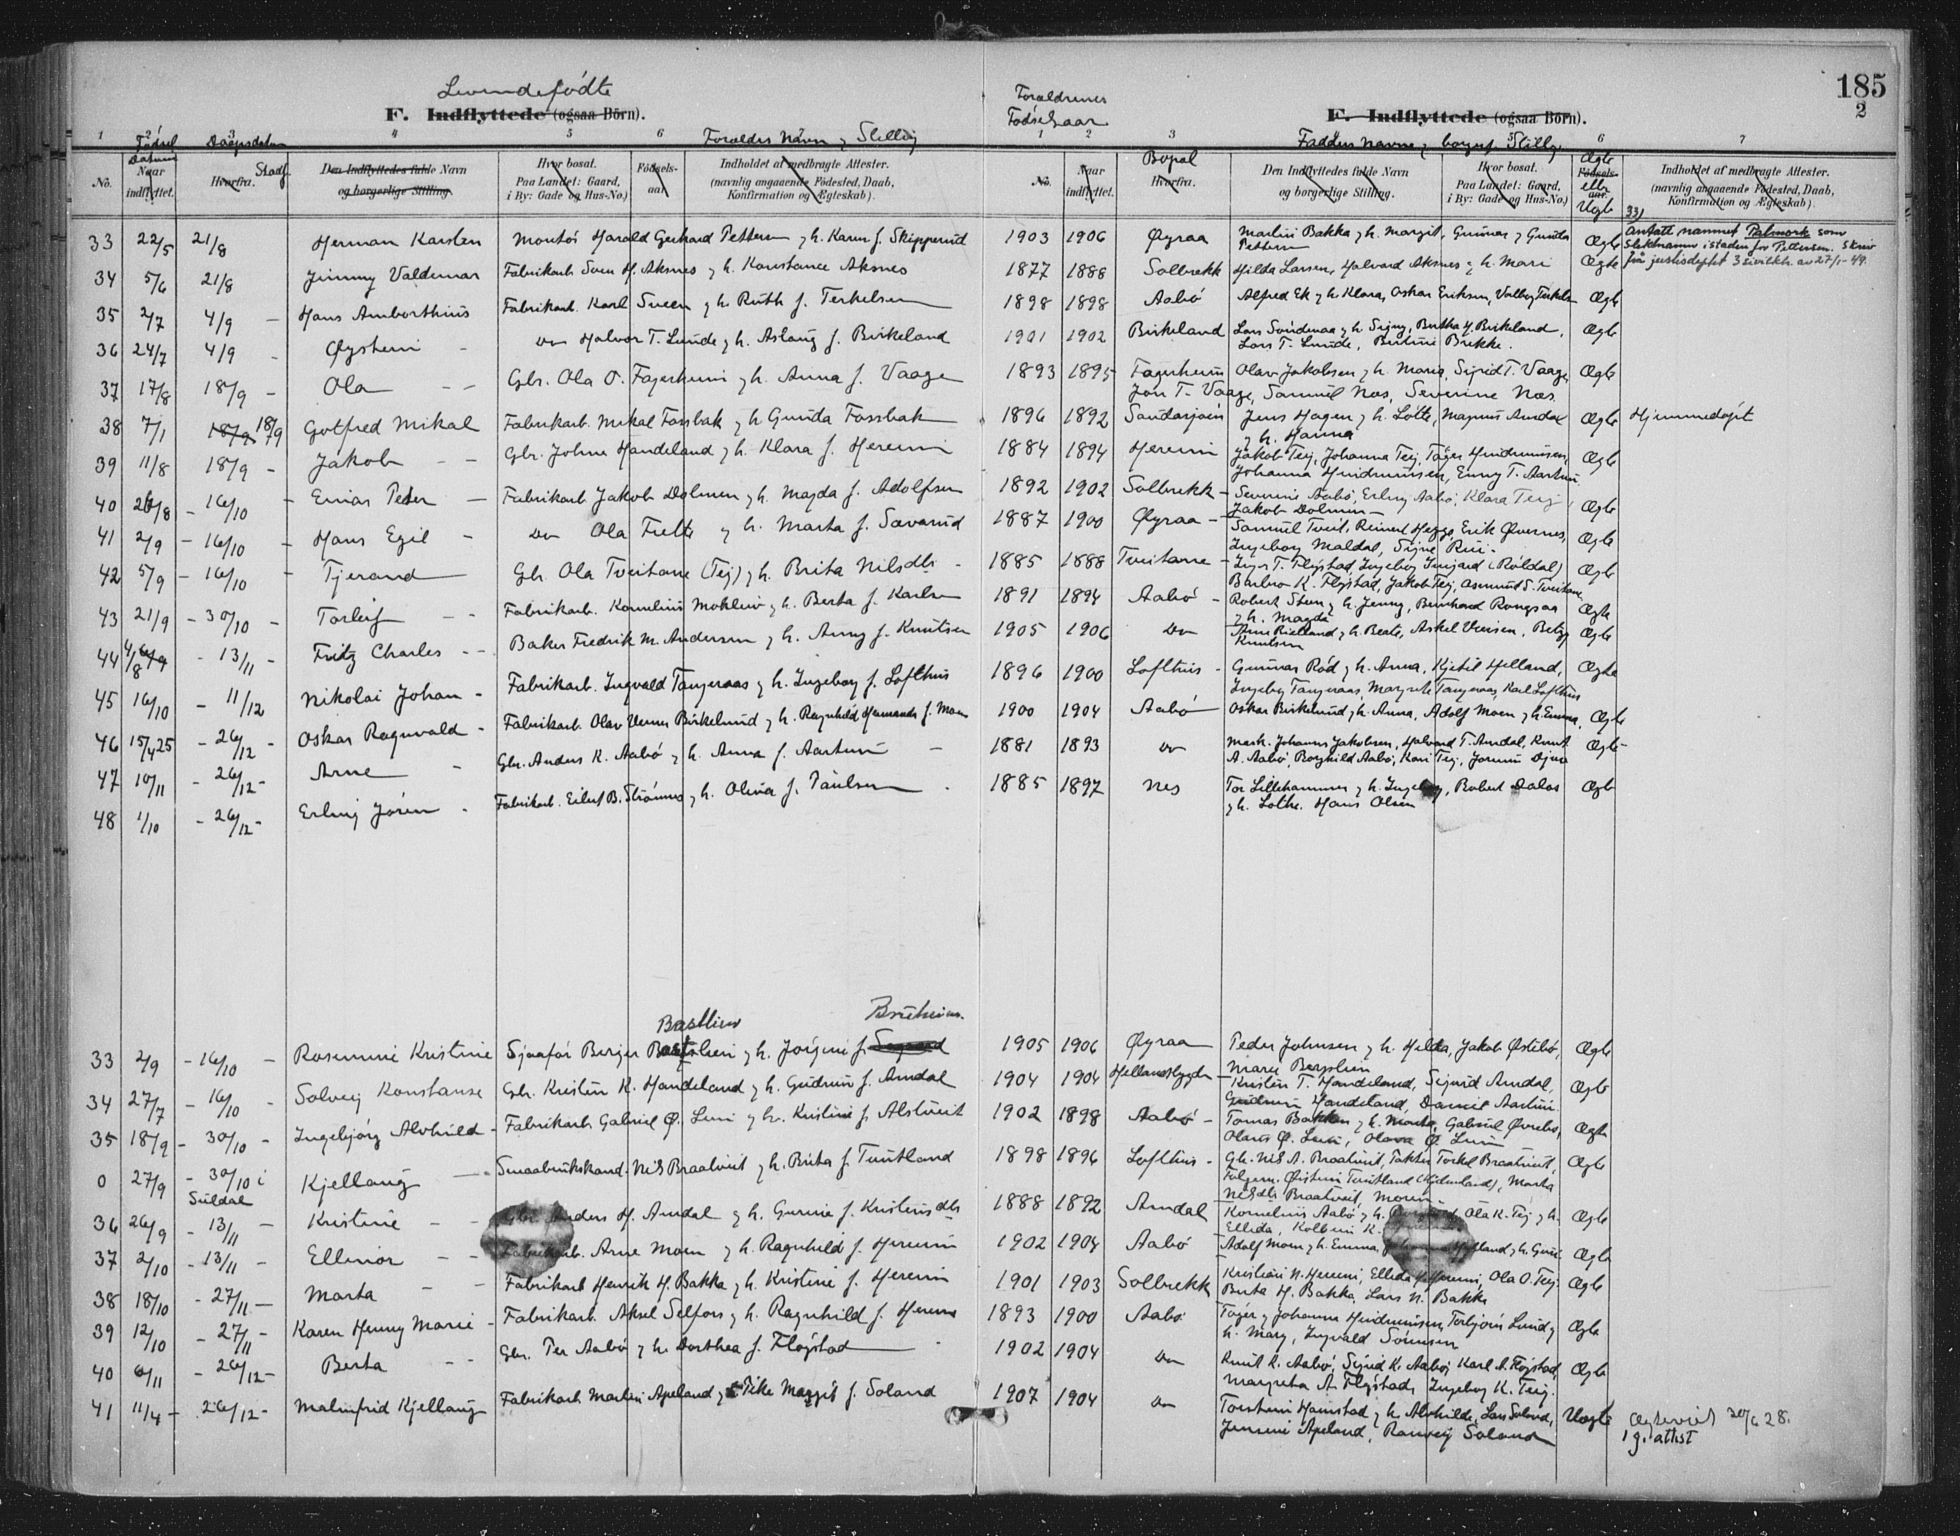 Levendefödte
F. Indflyttede (ogsaa Börn).
Forældrenes Fødselsaar
F. Indflyttede (ogsaa Börn).
185
2
1 2 3 4 5 6
Fødsel Daapsdatum
Forældes Navn og Stilling
1 2 3
Faddernes Navne og borgerl. Stilling
5 6 7
No. Datum Naar indflyttet. Hvorfra. Stadf. Den Indflyttedes fulde Navn og borgerlige Stilling. Hvor bosat. Paa Landet: Gaard, i By: Gade og Hus-No.) Fødsels-aar. Indholdet af medbragte Attester. (navnlig angaaende Födested, Daab, Konfirmation og Ægteskab).
No. Naar indflyttet. Bopæl Hvorfra. Den Indflyttedes fulde Navn og borgerlige Stilling. Hvor bosat. Paa Landet: Gaard, i By: Gade og Hus-No.) Fødsels-aar. Ægte eller Uegte Indholdet af medbragte Attester. (navnlig angaaende Födested, Daab, Konfirmation og Ægteskab).
33 22/5 21/8 Herman Karsten Montør Harald Gerhard Pettersen og h. Karen f. Skipperud 1903 1906 Øyraa Martin Bakka og h. Margit, Gunnar og Gunda Pettersen Ægte
33) Antatt namnet Palmork som slektsnamn istaden for Pettersen. Skriv frå justisdeptet 3 sivilktr. av 27/1-49.
34 5/6 21/8 Jimmy Valdemar Fabrikarb. Sven H. Aksnes og h. Konstance Aksnes 1877 1888 Solbrekk Hilda Larsen, Halvard Aksnes og h. Mari Ægte
35 2/7 4/9 Hans Amborthius Fabrikarb. Karl Sveen og h. Ruth f. Terkelsen 1898 1898 Aabö Alfred Ek og h. Klara, Oskar Eriksen, Valborg Terkelsen Ægte
36 24/7 4/9 Øystein Do Halvor T. Lunde og h. Aslaug f. Birkeland 1901 1902 Birkeland Lars Svindenaa og h. Signy, Bertha H. Birkeland, Lars T. Lunde, Bertine Brekke. Ægte
37 17/8 18/9 Ola Gbr. Ola O. Fagerheim og h. Anna f. Vaage 1893 1895 Fagerheim Olav Jakobsen og h. Maria, Sigrid T. Vaage, Jon T. Vaage, Samuel Nes, Severine Nes. Ægte
38 7/1 18/9 18/9 Gotfred Mikal Fabrikarb. Mikal Fossbak og h. Gunda Fossbak 1896 1892 Sandasjøen Jens Hagen og h. Lotte, Magnus Amdal og h. Hanna Ægte Hjemmedøpt
39 11/8 18/9 Jakob Gbr. Johne Handeland og h. Klara f. Hereim 1884 1894 Hereim Jakob Teij, Johanna Teij, Tøger Hindrumsen, Johanna Hindrumsen, Enny T. Aartun Ægte
40 26/8 16/10 Einar Peter Fabrikarb. Jakob Dolmen og h. Magda f. Adolfsen 1892 1902 Solbrekk Severin Aabö, Erling Aabö, Klara Teij, Jakob Dolmen Ægte
41 2/9 16/10 Hans Egil Do Ola Fielte og h. Marta f. Savarud 1887 1900 Øyraa Samuel Tveit, Reinert Hegge, Erik Øvernes, Ingeborg Maldal, Signe Rui. Ægte
42 5/9 16/10 Tjerand Gbr. Ola Tveitane (Teij) og h. Brita Nilsdtr. 1885 1888 Tveitane Inger T. Fløgstad, Ingeborg (Röldal) Barbro K. Fløgstad, Jakob Teij, Asmund S. Tveitane Ægte
43 21/9 30/10 Torleif Fabrikarb. Kornelius Moklev og h. Berta f. Karlsen 1891 1894 Aabö Robert Steen og h. Jenny, Bernhard Rongsaa og h. Magda Ægte
44 4/8 13/11 Fritz Charles Baker Fredrik M. Andersen og h. Anny f. Knutsen 1905 1906 Do Arne Rietland og h. Berte, Askel Versen, Betzy Knutsen Ægte
45 16/10 11/12 Nikolai Johan Fabrikarb. Ingvald Tangeraas og h. Ingeborg f. Lofthus 1896 1900 Lofthus Gunnar Röd og h. Anna, Kjetil Helland, Ingeborg Tangeraas, Margrete Tangeraas, Karl Lofthus Ægte
46 15/4 25 26/12 Oskar Ragnvald Fabrikarb. Olav Verner Birkelund og h. Ragnhild Hermanda f. Moen 1900 1904 Aabö Oskar Birkelund og h. Anna, Adolf Moen og h. Emma, Ægte
47 10/11 26/12 Arne Gbr. Anders K. Aabö og h. Anna f. Aartun 1881 1893 Do Mask. Johannes Jakobsen, Halvard T. Amdal, Knut A. Aabö, Borghild Aabö, Kari Teij, Jorunn Djuv Ægte
48 1/10 26/12 Erling Jören Fabrikarb. Eilert B. Strömnes og h. Olina f. Paulsen 1885 1897 Nes Tor Lillehammer og h. Ingeborg, Robert Dalas og h. Lothe. Hans Olsen Ægte
Bastlien Brüheim.
33 2/9 16/10 Rosemine Kristine Sjaafør Berger og h. Jörgine f. 1905 1906 Øyraa Peder Johnsen og h. Helda, Jakob Østebö, Marie Ægte
34 27/7 16/10 Solveig Konstanse Gbr. Kristen K. Handeland og h. Gudrun f. Amdal 1904 1904 Hellandsbygden Kristen T. Handeland, Sigurd Amdal, Gudrun Handeland, Daniel Aartun Ægte
35 18/9 30/10 Ingebjörg Alvhild Fabrikarb. Gabriel Ø. Lien og h. Kristine f. Alstveit 1902 1898 Aabö Tomas Bakken og h. Marta, Gabriel Øvrebö, Olaus Ø. Lien, Olava Ø. Lien Ægte
0 27/9 30/10 i Suldal Kjellaug Smaabrukskand. Nils Braatveit og h. Brita f. Tveitland 1898 1896 Lofthus Gbr. Nils A. Braatveit, Torkel Braatveit, Øistein Tveitland, Marta Nilsdtr. Braatveit, Moren Ægte
36 26/9 13/11 Kristine Gbr. Anders H. Amdal og h. Gunnie f. Kristensdtr. 1888 1892 Amdal Kornelius Aabö og h. Ola K. Teij og h. Ellida Kolbein K. Ægte
37 2/10 13/11 Ellinor Fabrikarb. Arne Moen og h. Ragnhild f. Hereim 1902 1904 Aabö Adolf Moen og h. Emma, Helland og h. Ægte
38 18/10 27/11 Marta Fabrikarb. Henrik H. Bakka og h. Kristine f. Hereim 1901 1903 Solbrekk Kristian N. Hereim, Ellida Hereim, Ola O. Teij. Berta H. Bakka, Lars N. Bakka Ægte
39 12/10 27/11 Karen Henny Marie Fabrikarb. Aksel Selfors og h. Ragnhild f. Hereim 1893 1900 Aabö Töger og Johanna Hindrumsen, Torbjörn Lund og h. Mary, Ingvald Sörensen Ægte
40 6/11 26/12 Berta Gbr. Per Aabö og h. Dorthea f. Fløgstad 1902 1904 Do Knut K. Aabö, Sigrid K. Aabö, Karl A. Fløgstad, Margreta A. Fløgstad, Ingeborg K. Teij. Ægte
41 11/4 26/12 Malmfrid Kjellaug Fabrikarb. Martin Apeland og Pike Margit f. Soland 1907 1904 Do Torstein Hamstad og h. Alvhilde, Lars Soland, Jensine Apeland, Ranveig Soland Uægte Ægteviet 30/6 28. i g. attest